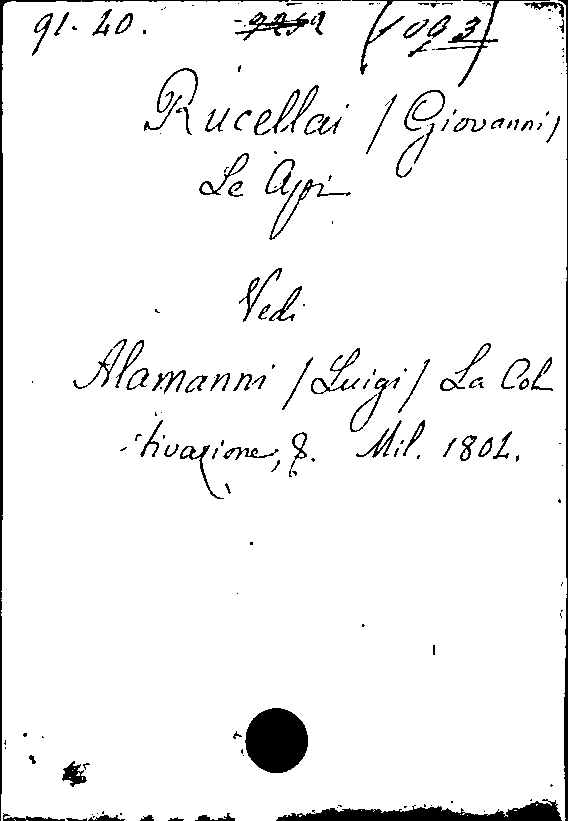 91. 20. (1093)
Rucellai /Giovanni/
Le Api
Vedi
Alamanni /Luigi/ La Col
tivazione, &. Mil. 1804.